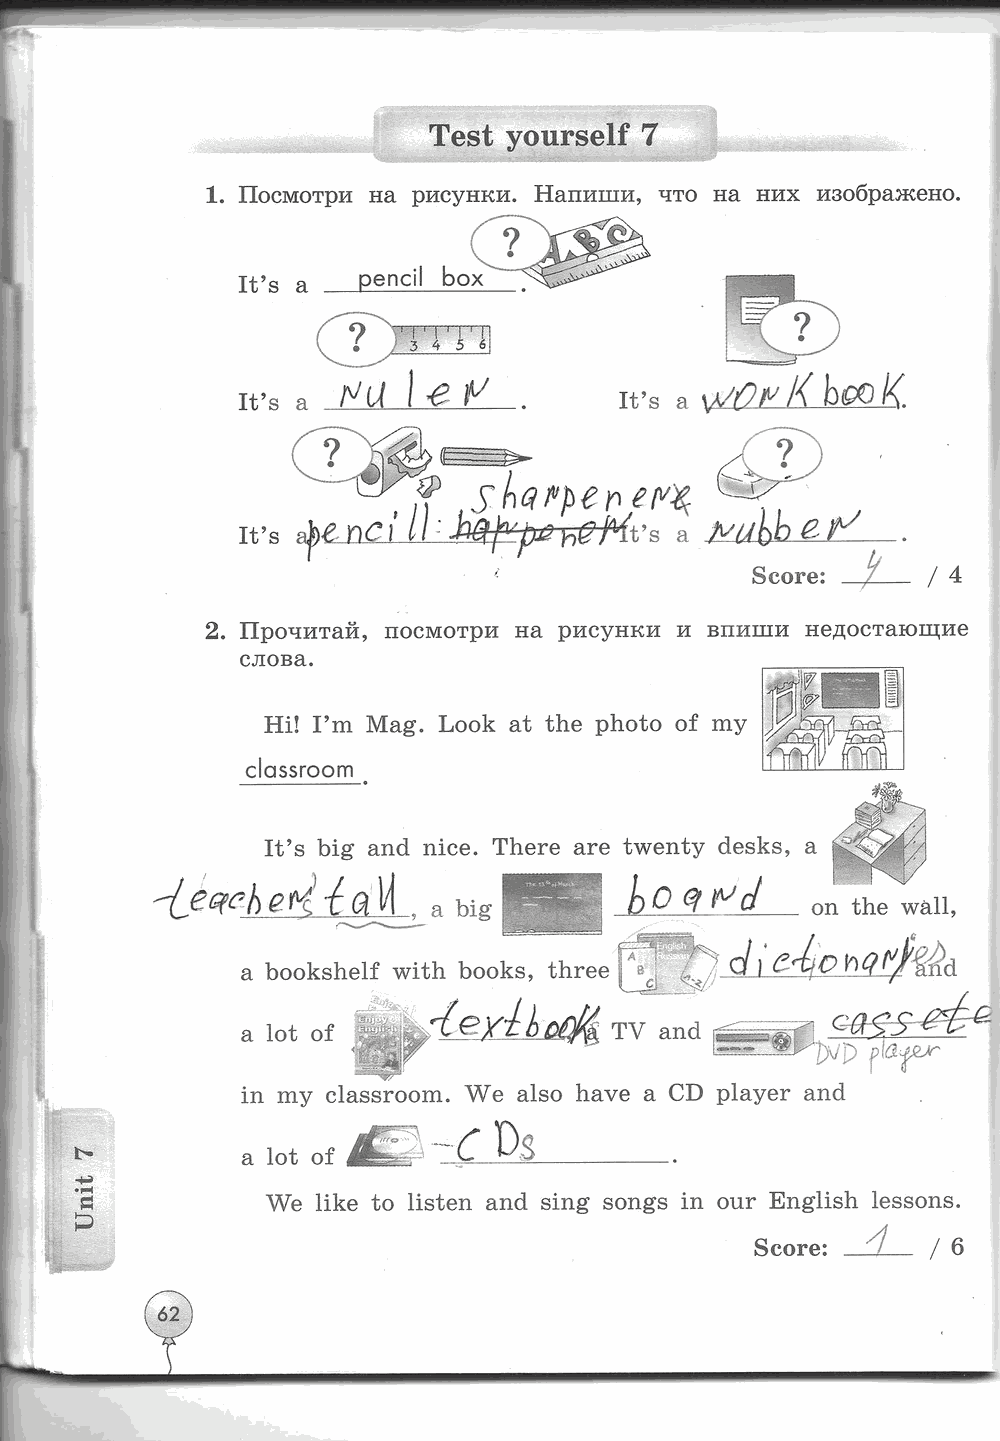 Test yourself 7
1. Посмотри на рисунки. Напиши, что на них изображено.
? ABC
It's a pencil box.
? 3 4 5 6 ?
It's a ruler. It's a workbook.
? ?
sharpener
It's a pencil harpener It's a rubber.
Score: 4 / 4
2. Прочитай, посмотри на рисунки и впиши недостающие
слова.
Hi! I'm Mag. Look at the photo of my
classroom.
It's big and nice. There are twenty desks, a
teacher's tall, a big board on the wall,
a bookshelf with books, three A B C English A-Z dictionaries and
a lot of Enjoy English textbooks a TV and cassete
DVD player
in my classroom. We also have a CD player and
a lot of CDs.
We like to listen and sing songs in our English lessons.
Score: 1 / 6
Unit 7
62